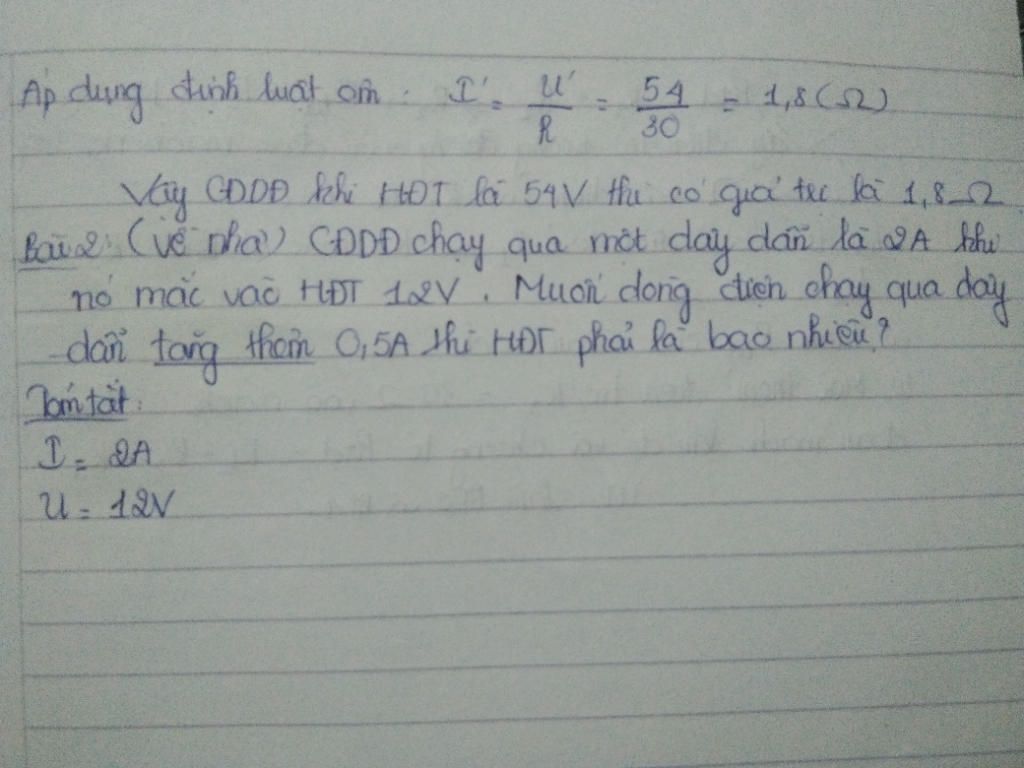 Áp dụng định luật ôm : I' = U'/R = 54/30 = 1,8 (Ω)
Vậy CĐDĐ khi HĐT là 54V thì có giá trị là 1,8 Ω
Bài 2: (về nhà) CĐDĐ chạy qua một dây dẫn là 2A khi
nó mắc vào HĐT 12V. Muốn dòng điện chạy qua dây
dẫn tăng thêm 0,5A thì HĐT phải là bao nhiêu?
Tóm tắt:
I = 2A
U = 12V